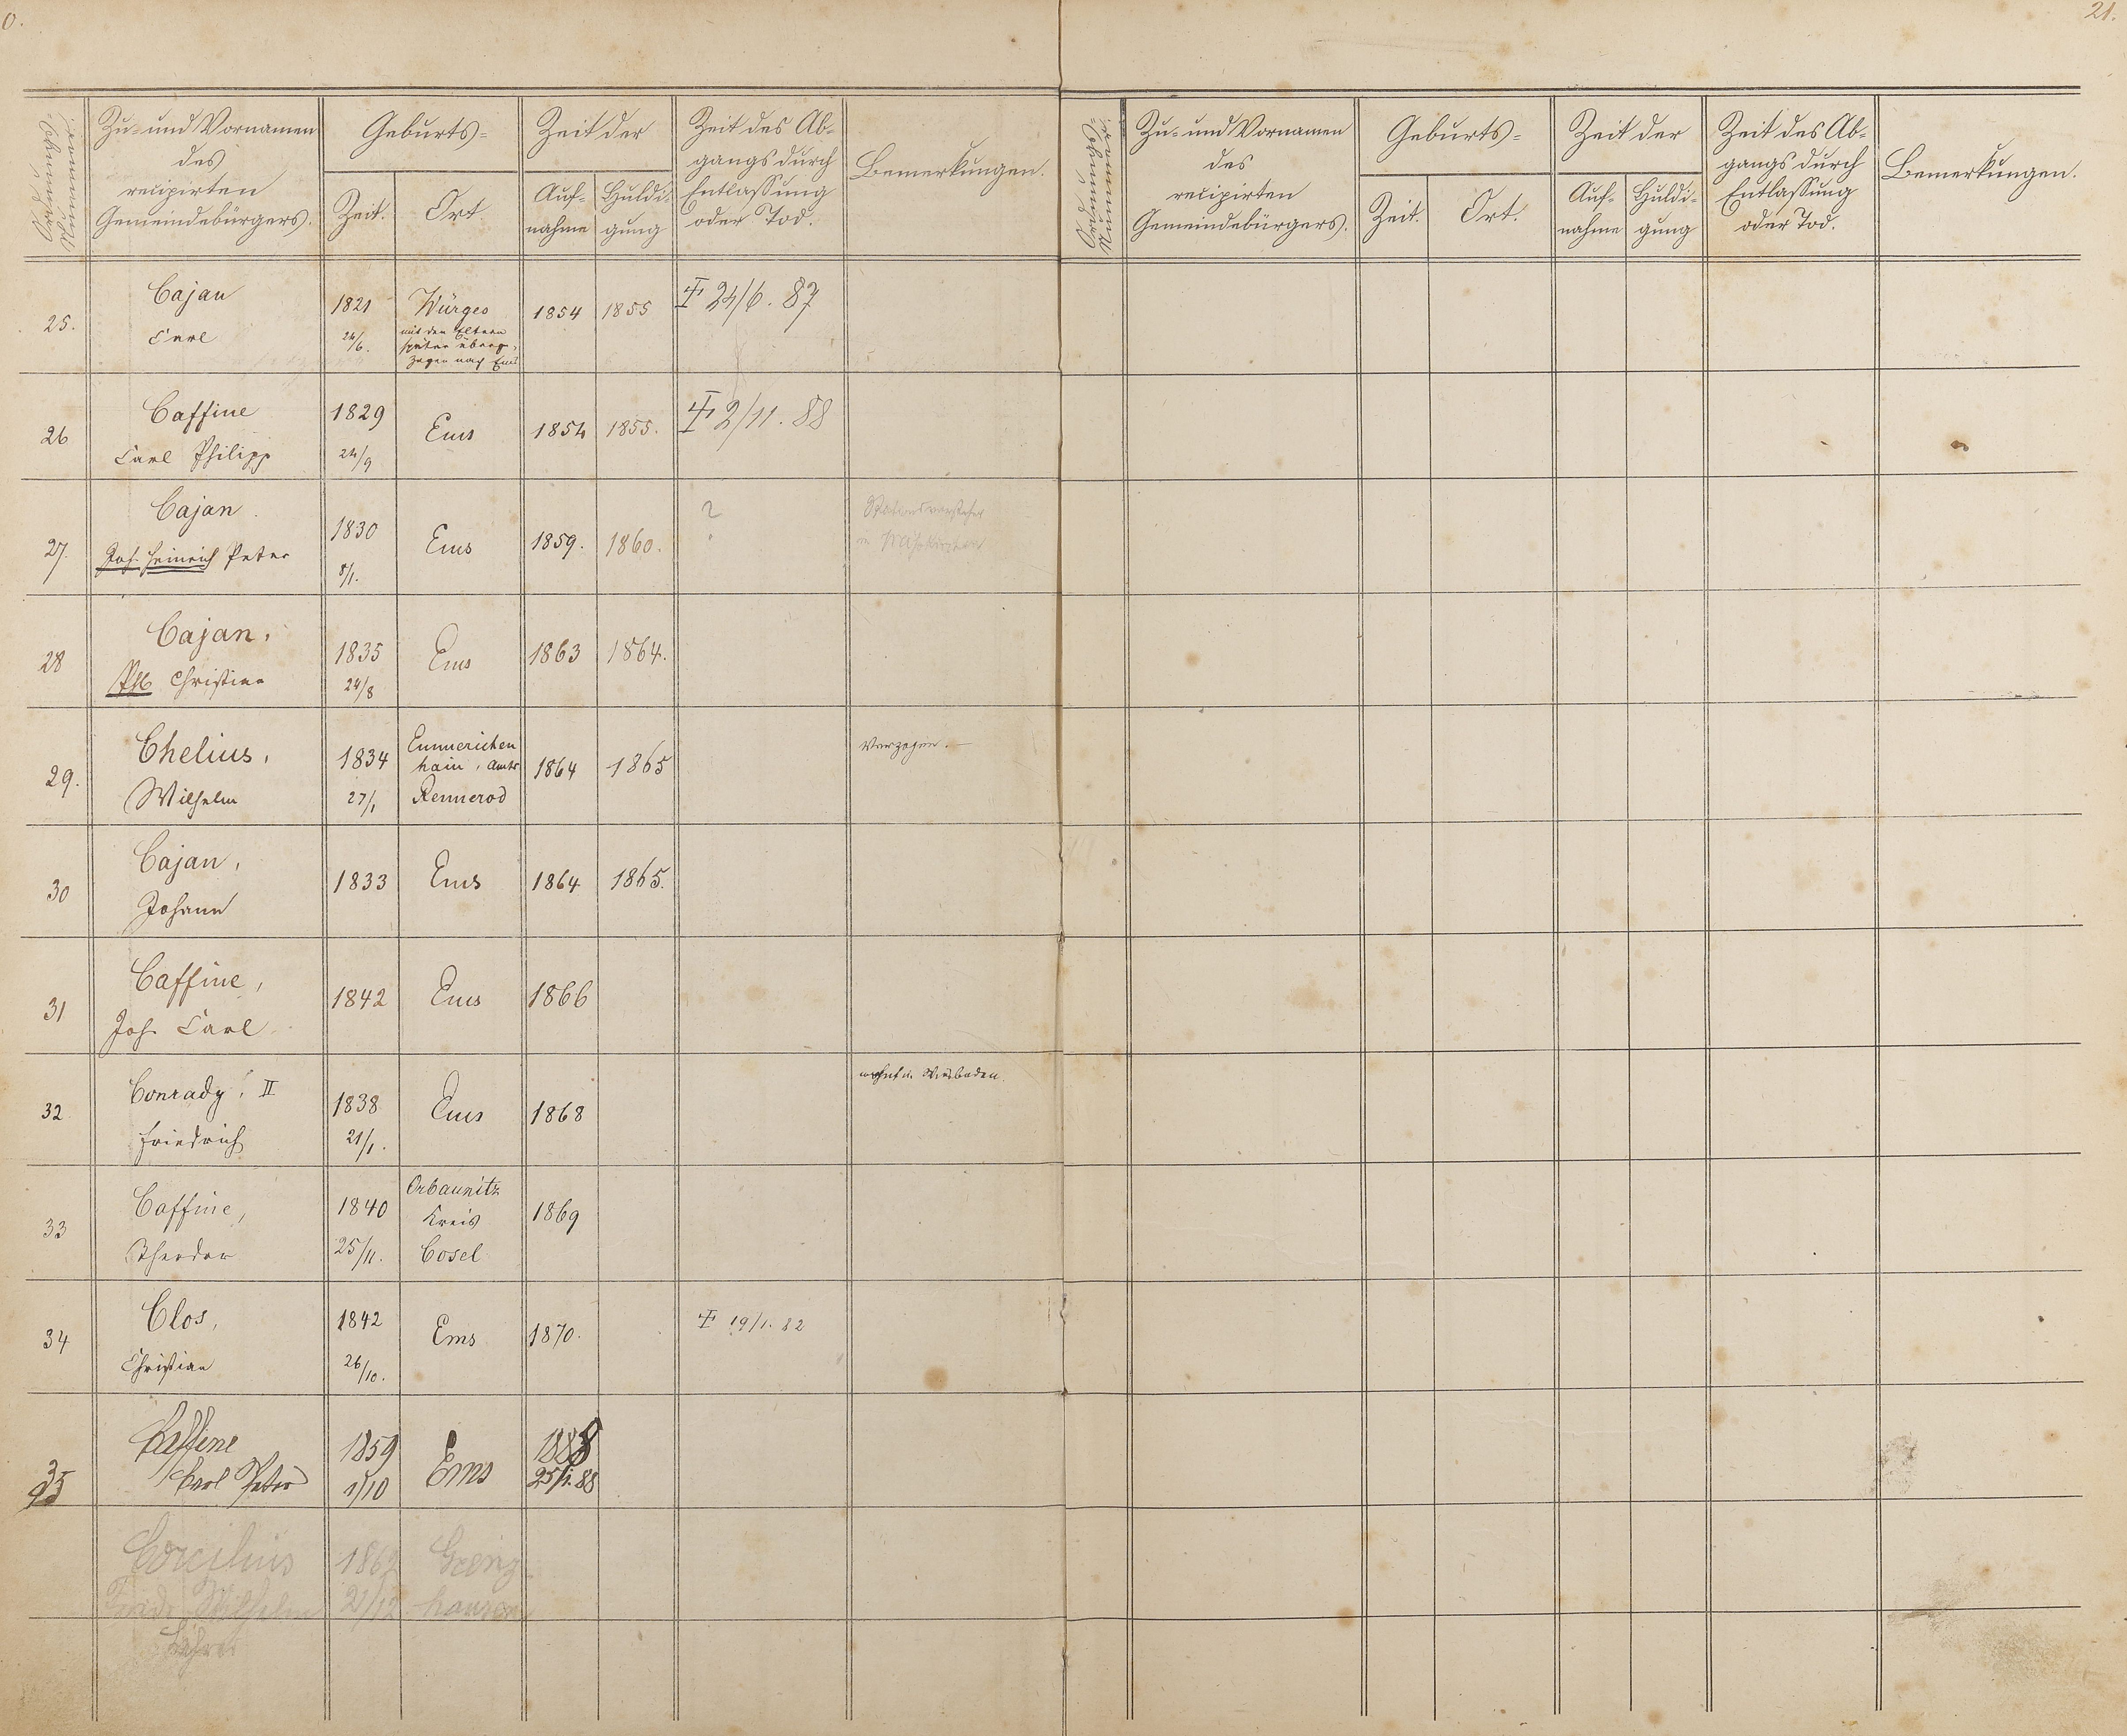 0.
21.
Ordnungs-Nummer.
Zu- und Vornamen
des
recipirten
Gemeindebürgers.
Geburts-
Zeit.
Ort.
Zeit der
Auf-
nahme
Huldi-
gung
Zeit des Ab-
gangs durch
Entlassung
oder Tod.
Bemerkungen.
Ordnungs-Nummer.
Zu- und Vornamen
des
recipirten
Gemeindebürgers.
Geburts-
Zeit.
Ort.
Zeit der
Auf-
nahme
Huldi-
gung
Zeit des Ab-
gangs durch
Entlassung
oder Tod.
Bemerkungen.
25.
Cajan
Carl
1821
24/6.
Würges
mit den Eltern
später überge-
zogen nach Ems
1854
1855
† 24/6. 87
26
Caffine
Carl Philipp
1829
24/9
Ems
1854
1855.
† 2/11. 88
27.
Cajan.
Joh. Heinrich Peter
1830
8/1.
Ems
1859.
1860.
?
28
Cajan,
Phil Christian
1835
24/8
Ems
1863
1864.
29.
Chelius,
Wilhelm
1834
27/1
Emmerichen
hain, Amts
Rennerod
1864
1865
Verzogen.—
30
Cajan,
Johann
1833
Ems
1864
1865.
31
Caffine,
Joh. Carl
1842
Ems
1866
32
Conrady, II
Friedrich
1838
21/1.
Ems
1868
wohnt in Wiesbaden.
33
Caffine,
Theodor
1840
25/11.
Kreis
Cosel
1869
34
Clos,
Christian
1842
26/10.
Ems
1870.
† 19/1. 82
35
Caffine
Carl Peter
1859
1/10
Ems
1888
25/1. 88
Corcilius
Friedr. Wilhelm
Lehrer
1862
21/12
hausen